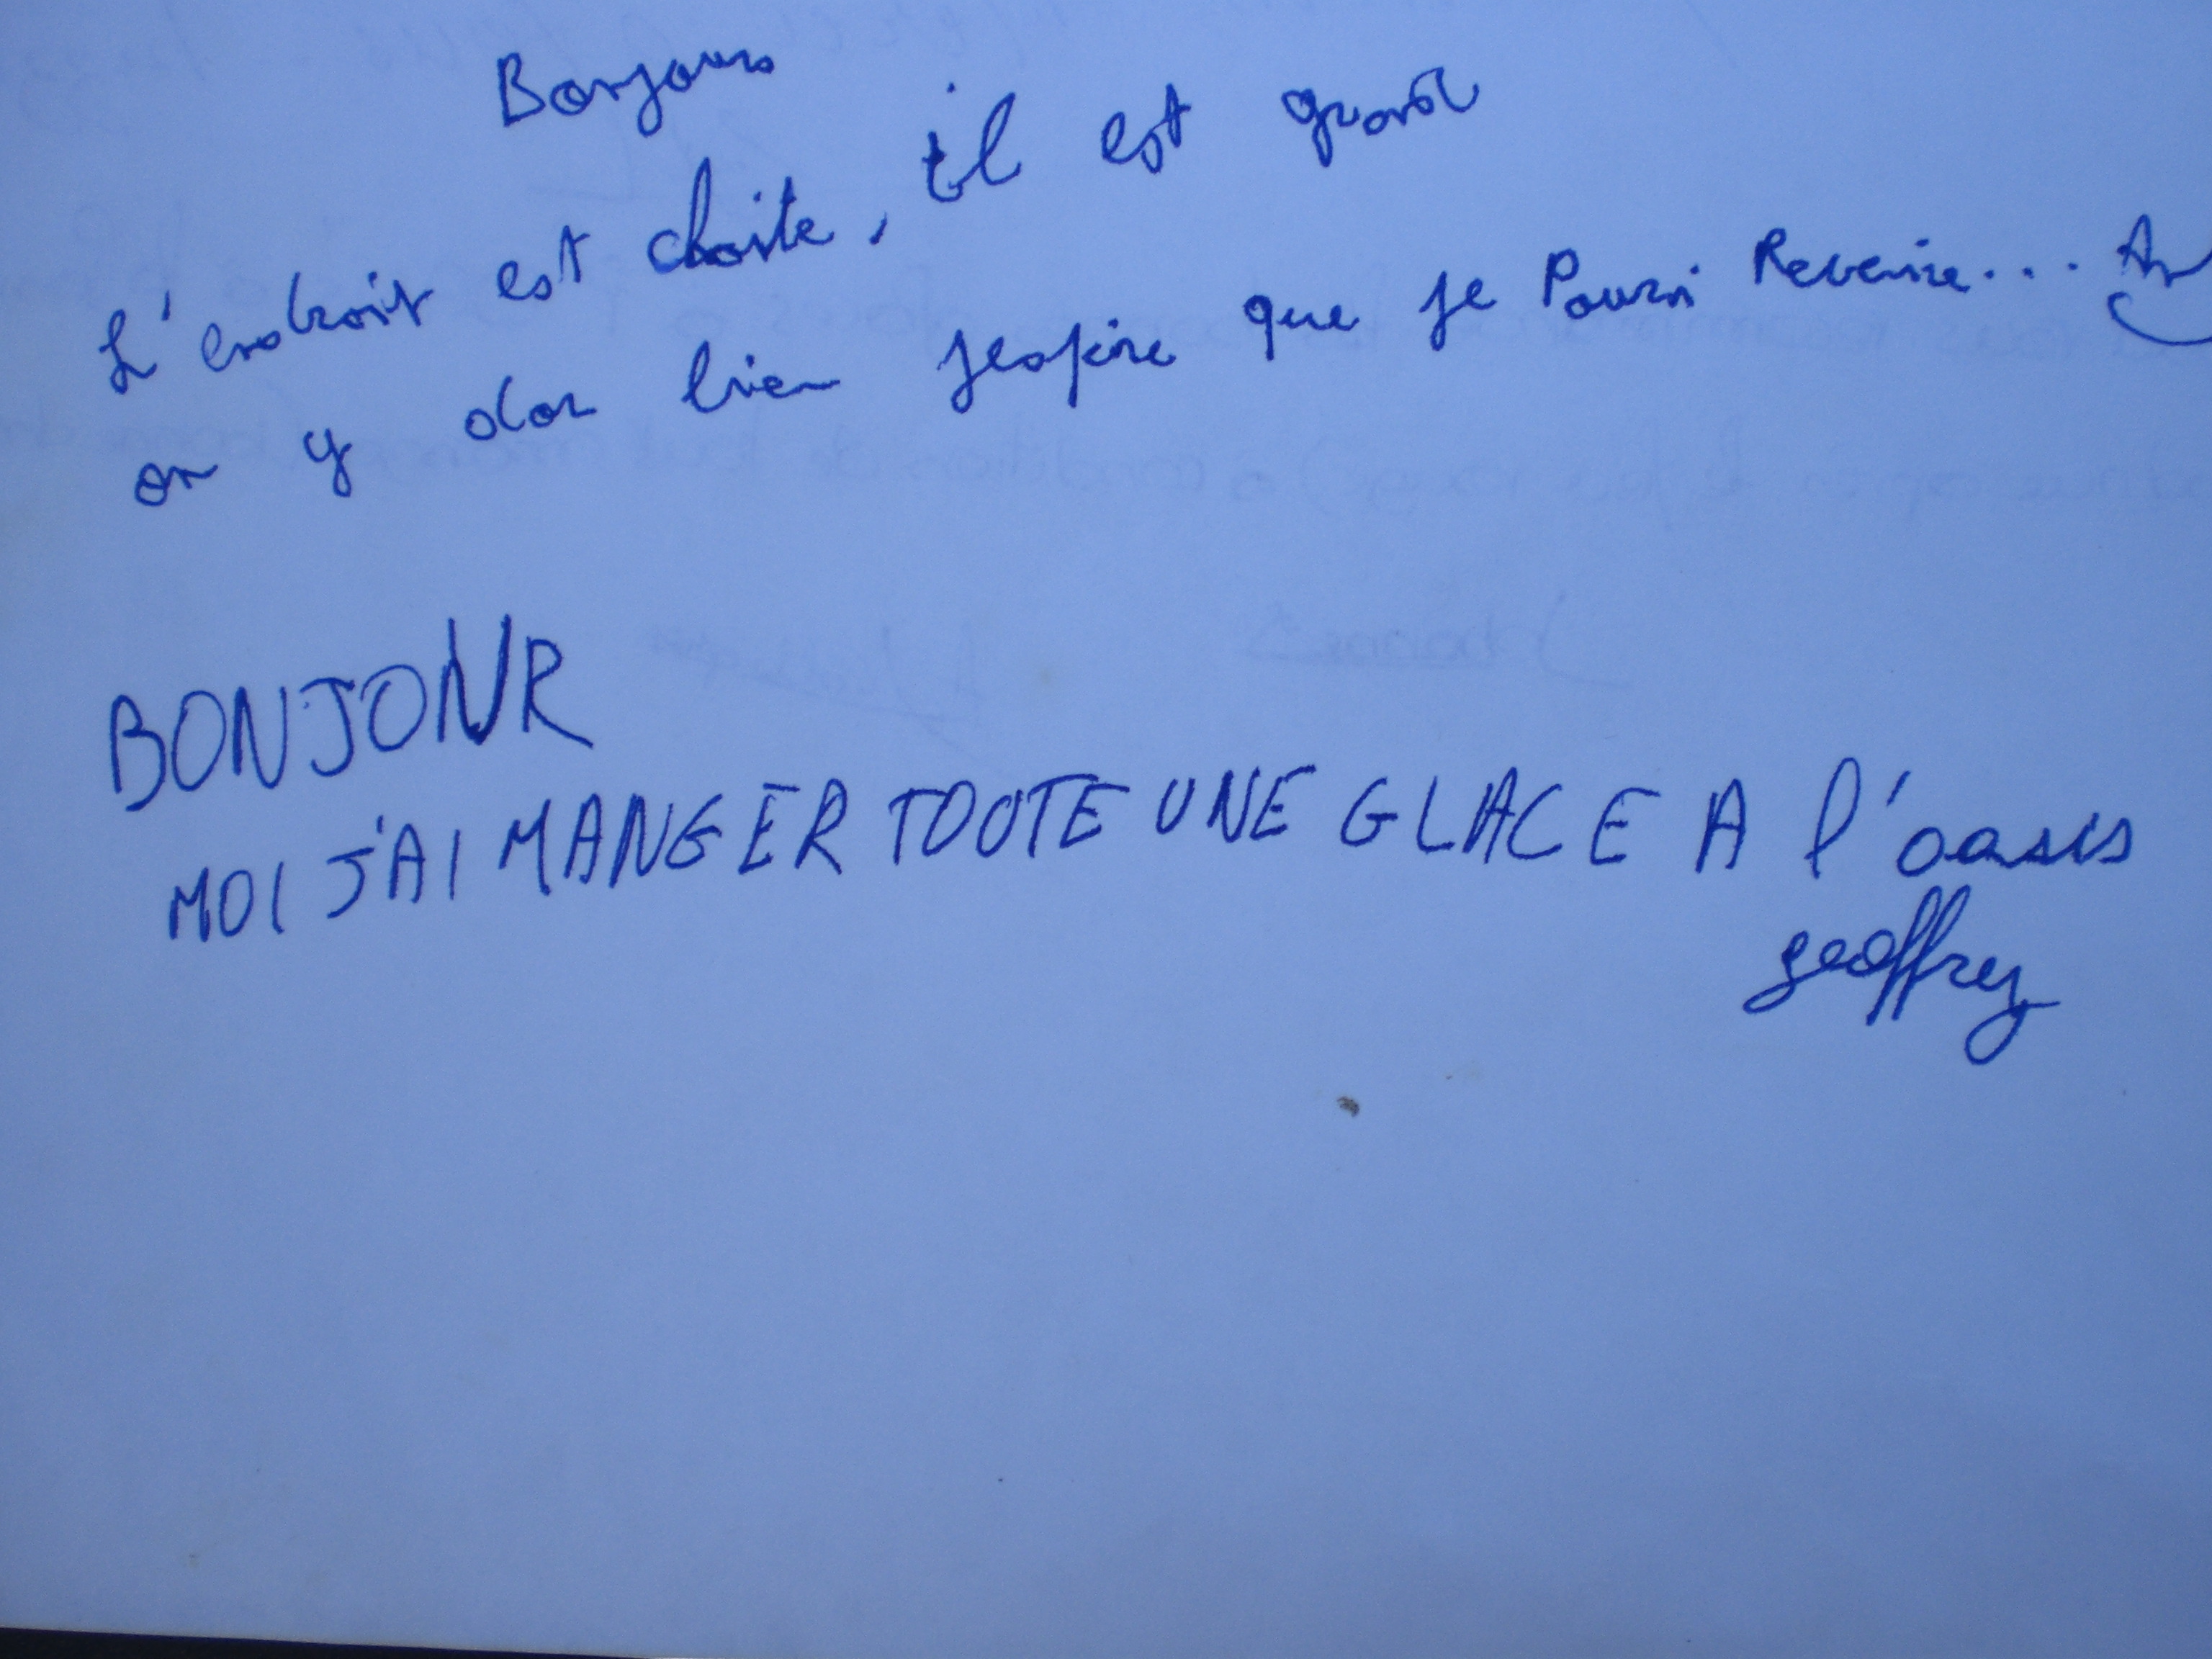 Bonjours
L'endroit est choite, il est grand
on y dor bien jespire que je Pourri Revenire...
BONJONR
MOI J'AI MANGER TOOTE UNE GLACE A l'oasis
geoffrey